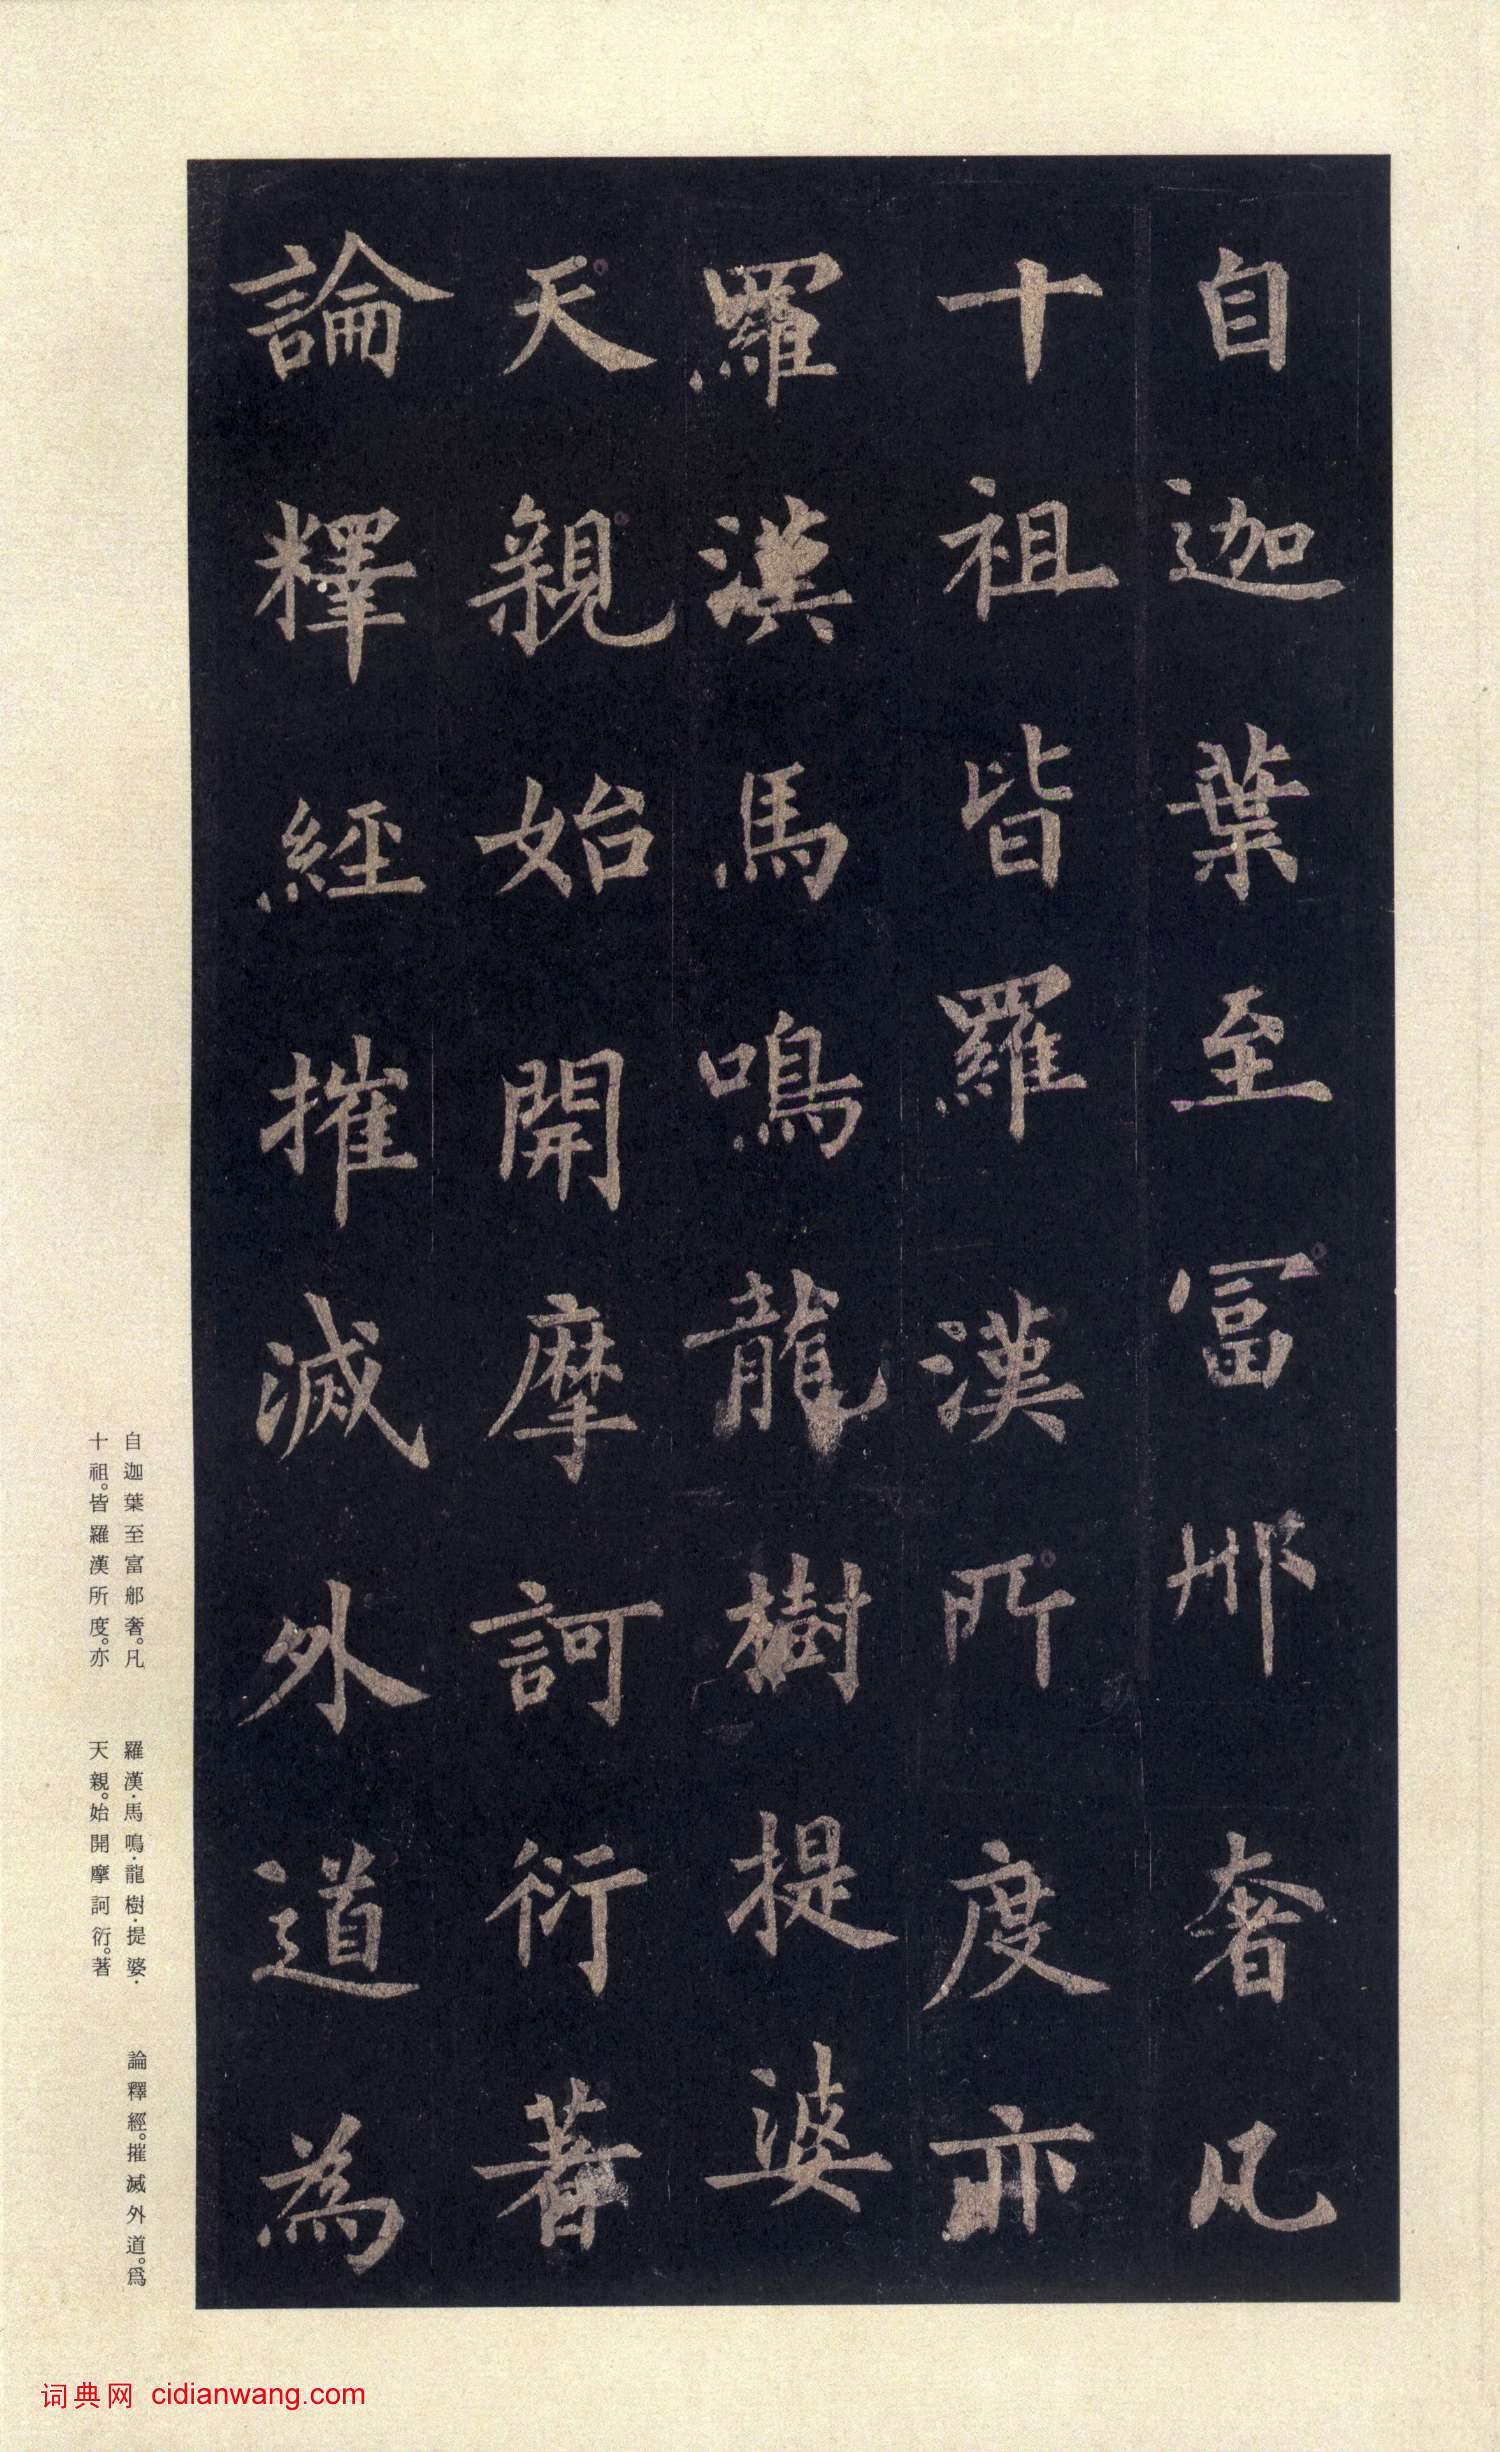 自迦葉至富那奢凡
十祖皆羅漢所度亦
羅漢馬鳴龍樹提婆
天親始開摩訶衍著
論釋經摧滅外道為
自迦葉至富那奢。凡
十祖。皆羅漢所度。亦
羅漢·馬鳴·龍樹·提婆·
天親。始開摩訶衍。著
論釋經。摧滅外道。爲
词典网 cidianwang.com